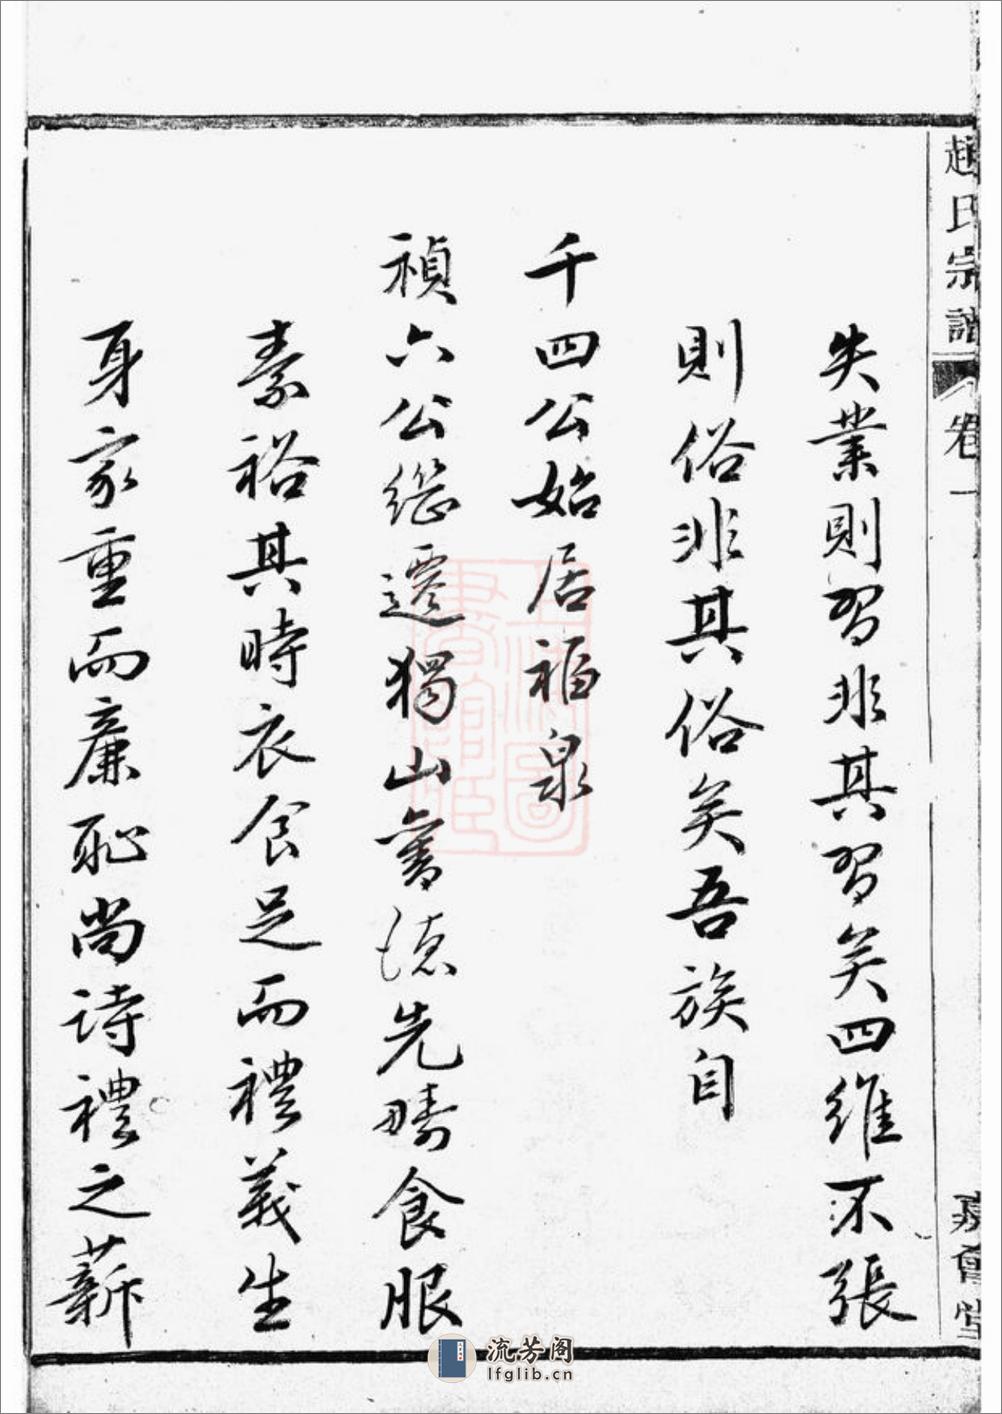 趙氏宗譜
卷一
失業則習非其習矣四維不張
則俗非其俗矣吾族自
千四公始居福泉
禎六公繼遷獨山舊德先疇食服
素裕其時衣食足而禮義生
身家重而廉恥尚詩禮之薪
會堂
流芳阁
lfglib.cn